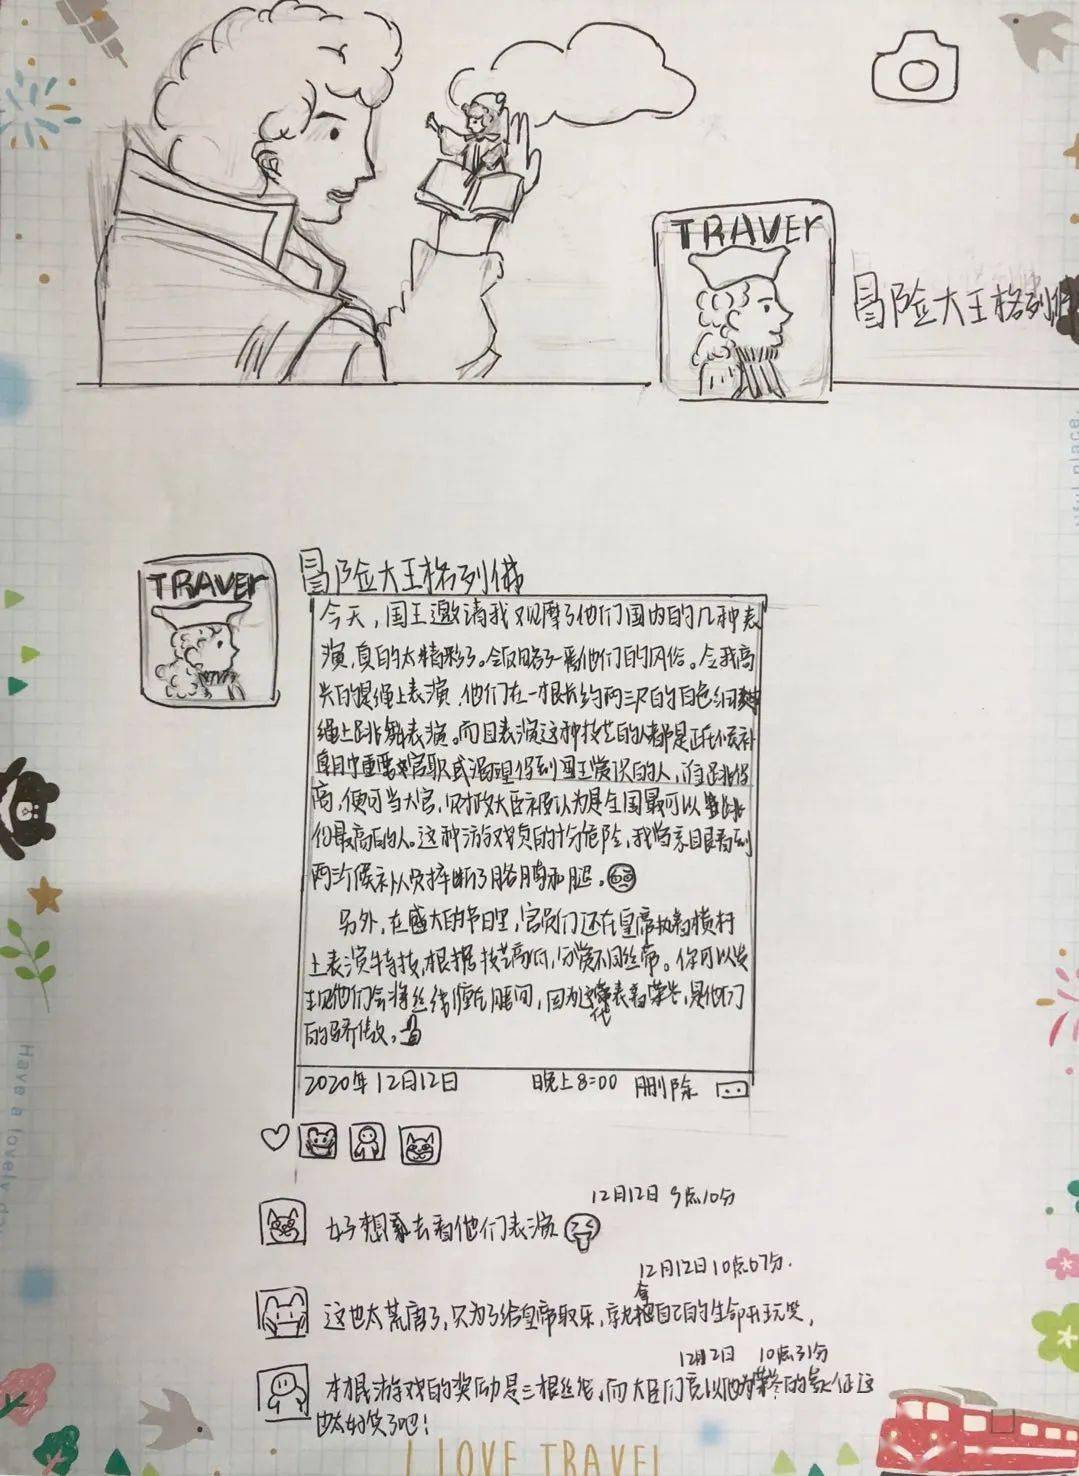 TRAVEr
冒险大王格列佛
TRAVEr
冒险大王格列佛
今天,国王邀请我观摩了他们国内的几种表
演,真的太精彩了。领略了一番他们的风俗。令我高
兴的是绳上表演,他们在一根长约两三尺的白色细
绳上跳舞表演。而且表演这种技艺的人都是正在候补
重要官职或渴望得到国王赏识的人,谁跳得
高,便可当大官,财政大臣被认为是全国最可以跳
得最高的人。这种游戏真的十分危险,我当亲眼看到
两三个候补人员摔断了胳膊和腿。
另外,在盛大的节日里,官员们还在皇帝执着横杆
上表演特技,根据技艺高低,分赏不同丝带。你可以发
现他们会将丝线缠在腰间,因为这代表着荣誉,是他们
的骄傲。
2020年12月12日 晚上8:00 删除
12月12日 9点10分
好想去看他们表演
12月12日10点07分.
这也太荒唐了,只为了给皇帝取乐,就拿自己的生命开玩笑,
12月12日 10点31分
本根游戏的奖励是三根丝线,而大臣们竟以他为荣誉的象征这
也太好笑了吧!
Have a lovely da
iful place.
I LOVE TRAVEL